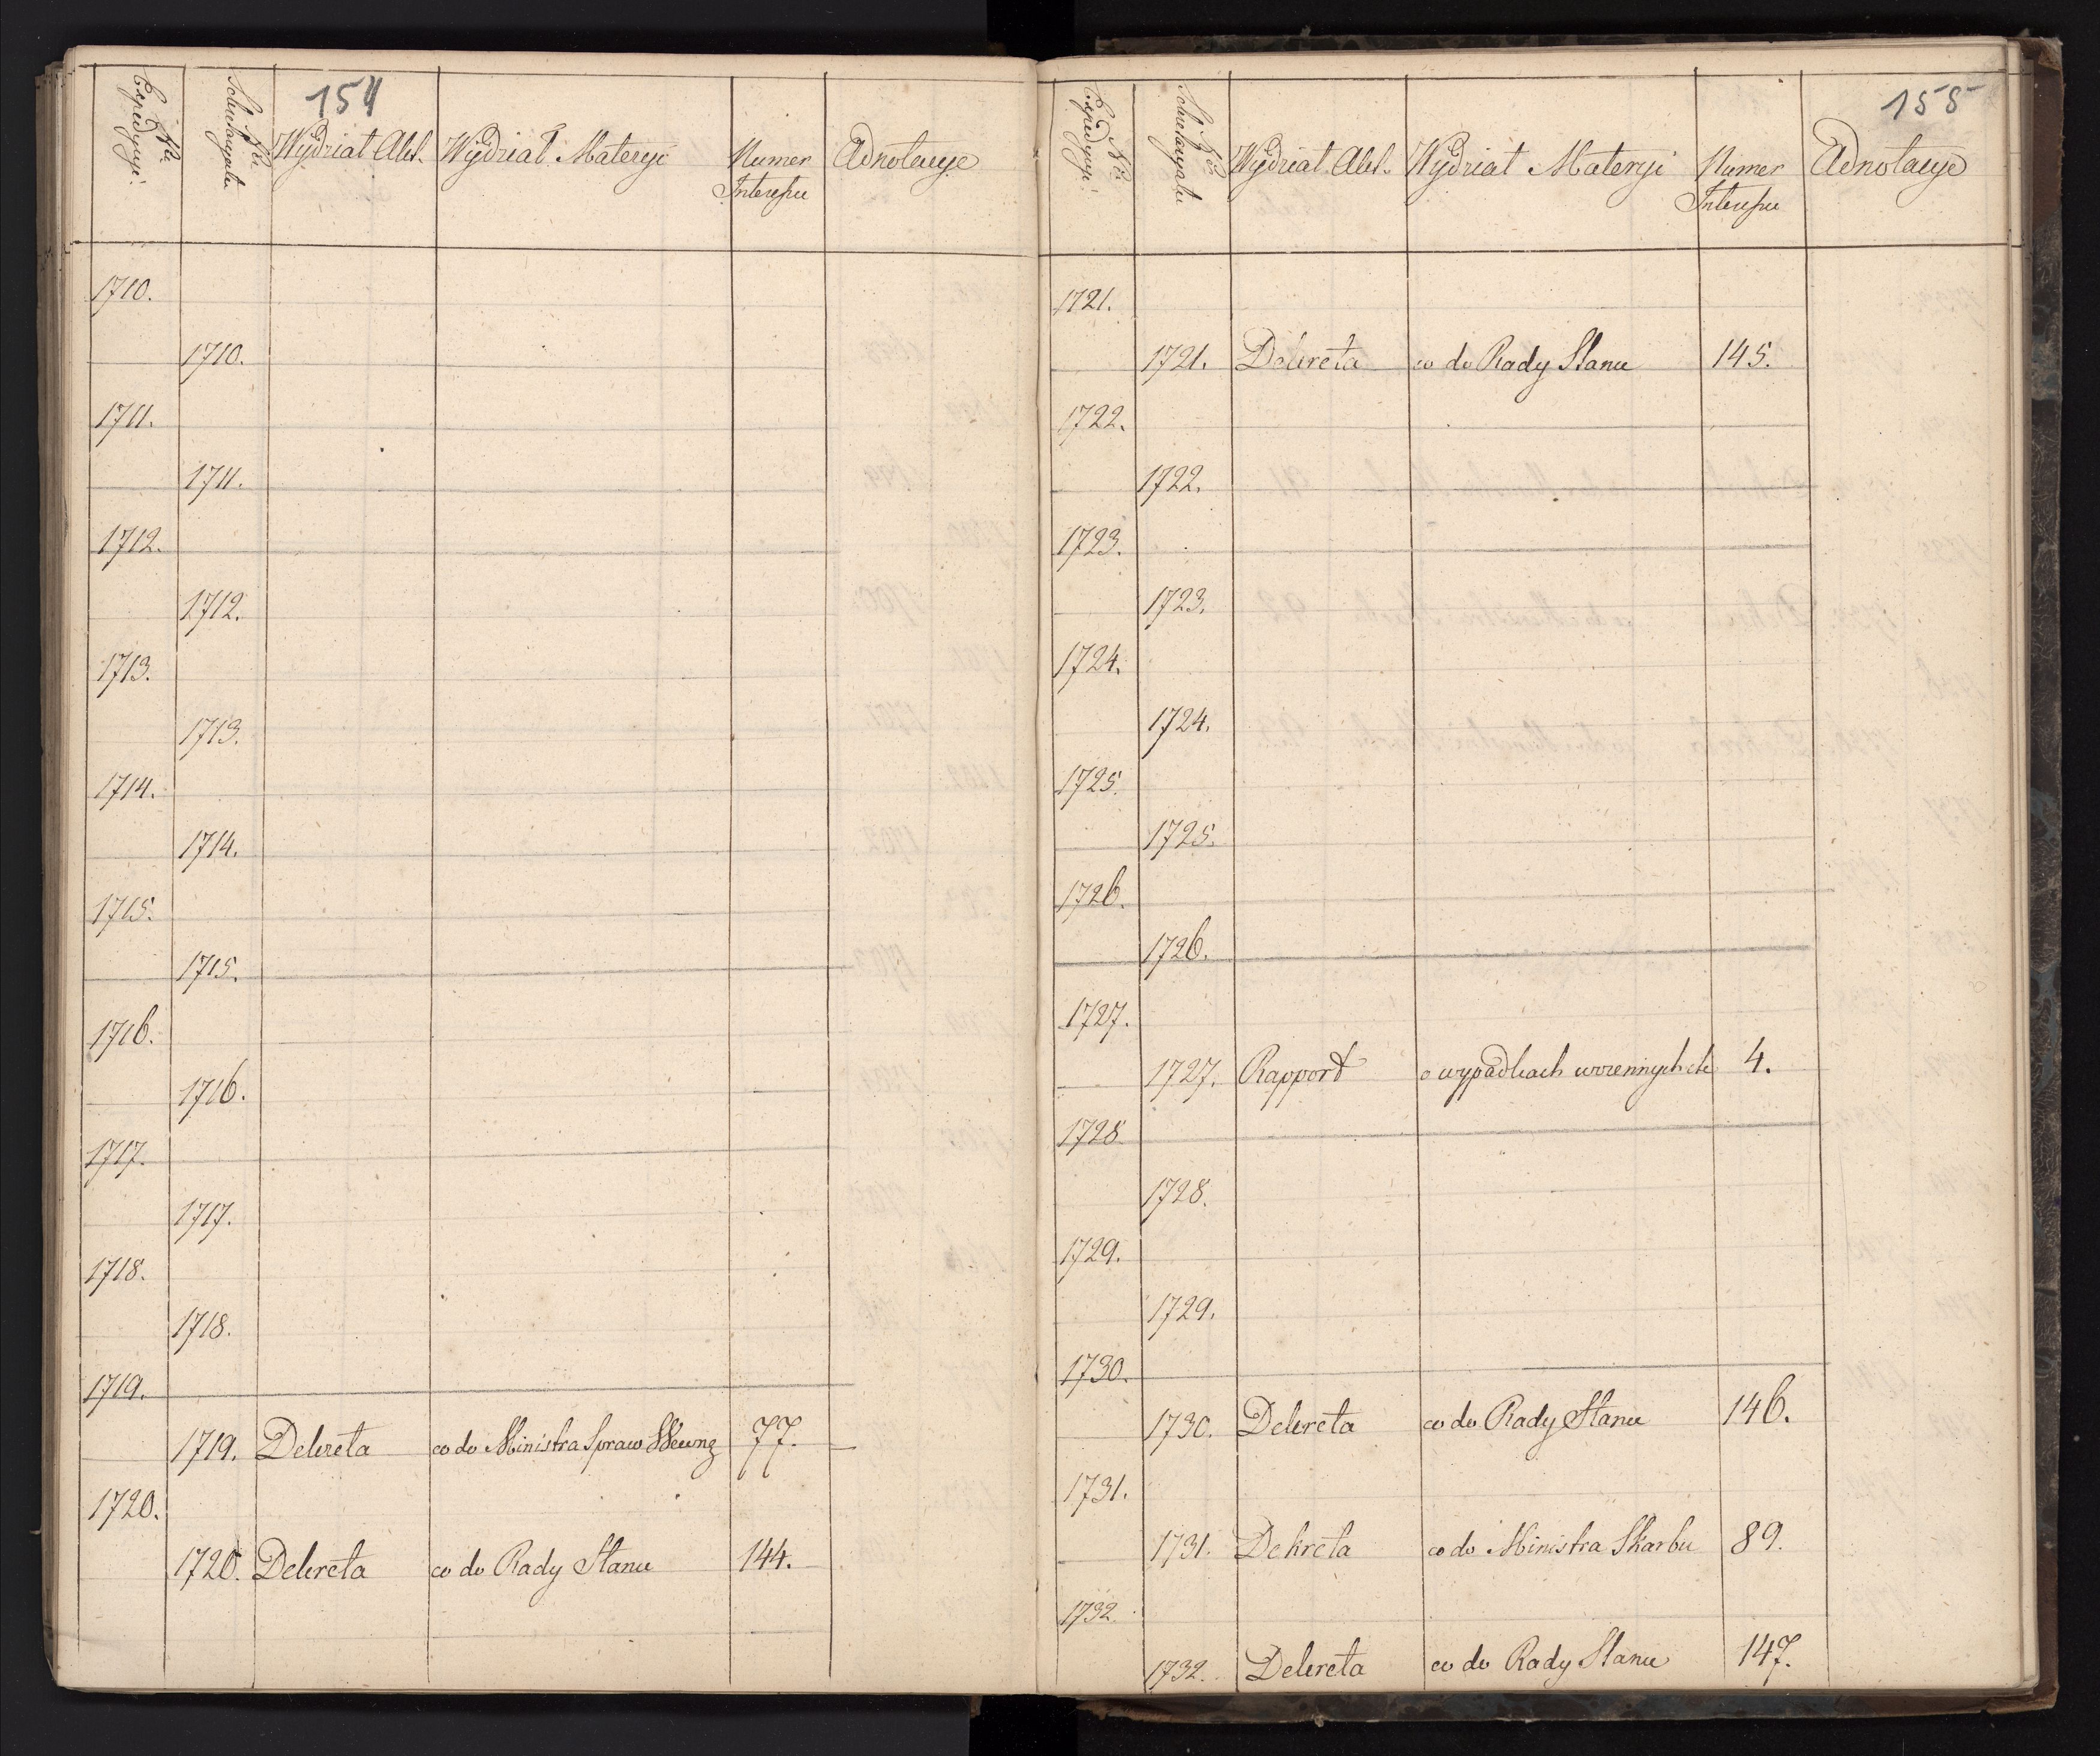 154
Nr. Expedycyi.
Nr. Sekretaryatu
Wÿdział Akt.
Wÿdział Materyi
Numer Interessu
Adnotacye
1710.
1710.
1711.
1711.
1712.
1712.
1713.
1713.
1714.
1714.
1715.
1715.
1716.
1716.
1717.
1717.
1718.
1718.
1719.
1719. Dekreta co do Ministra Spraw Wewnę 77.
1720.
1720. Dekreta co do Rady Stanu 144.
155
Nr. Expedycyi.
Nr. Sekretaryatu
Wÿdział Akt.
Wÿdział Materyi
Numer Interessu
Adnotacye
1721.
1721. Dekreta co do Rady Stanu 145.
1722.
1722.
1723.
1723.
1724.
1724.
1725.
1725.
1726.
1726.
1727.
1727. Rapport o wypadkach woiennych etc 4.
1728
1728.
1729.
1729.
1730.
1730. Dekreta co do Rady Stanu 146.
1731.
1731. Dekreta co do Ministra Skarbu 89.
1732.
1732. Dekreta co do Rady Stanu 147.